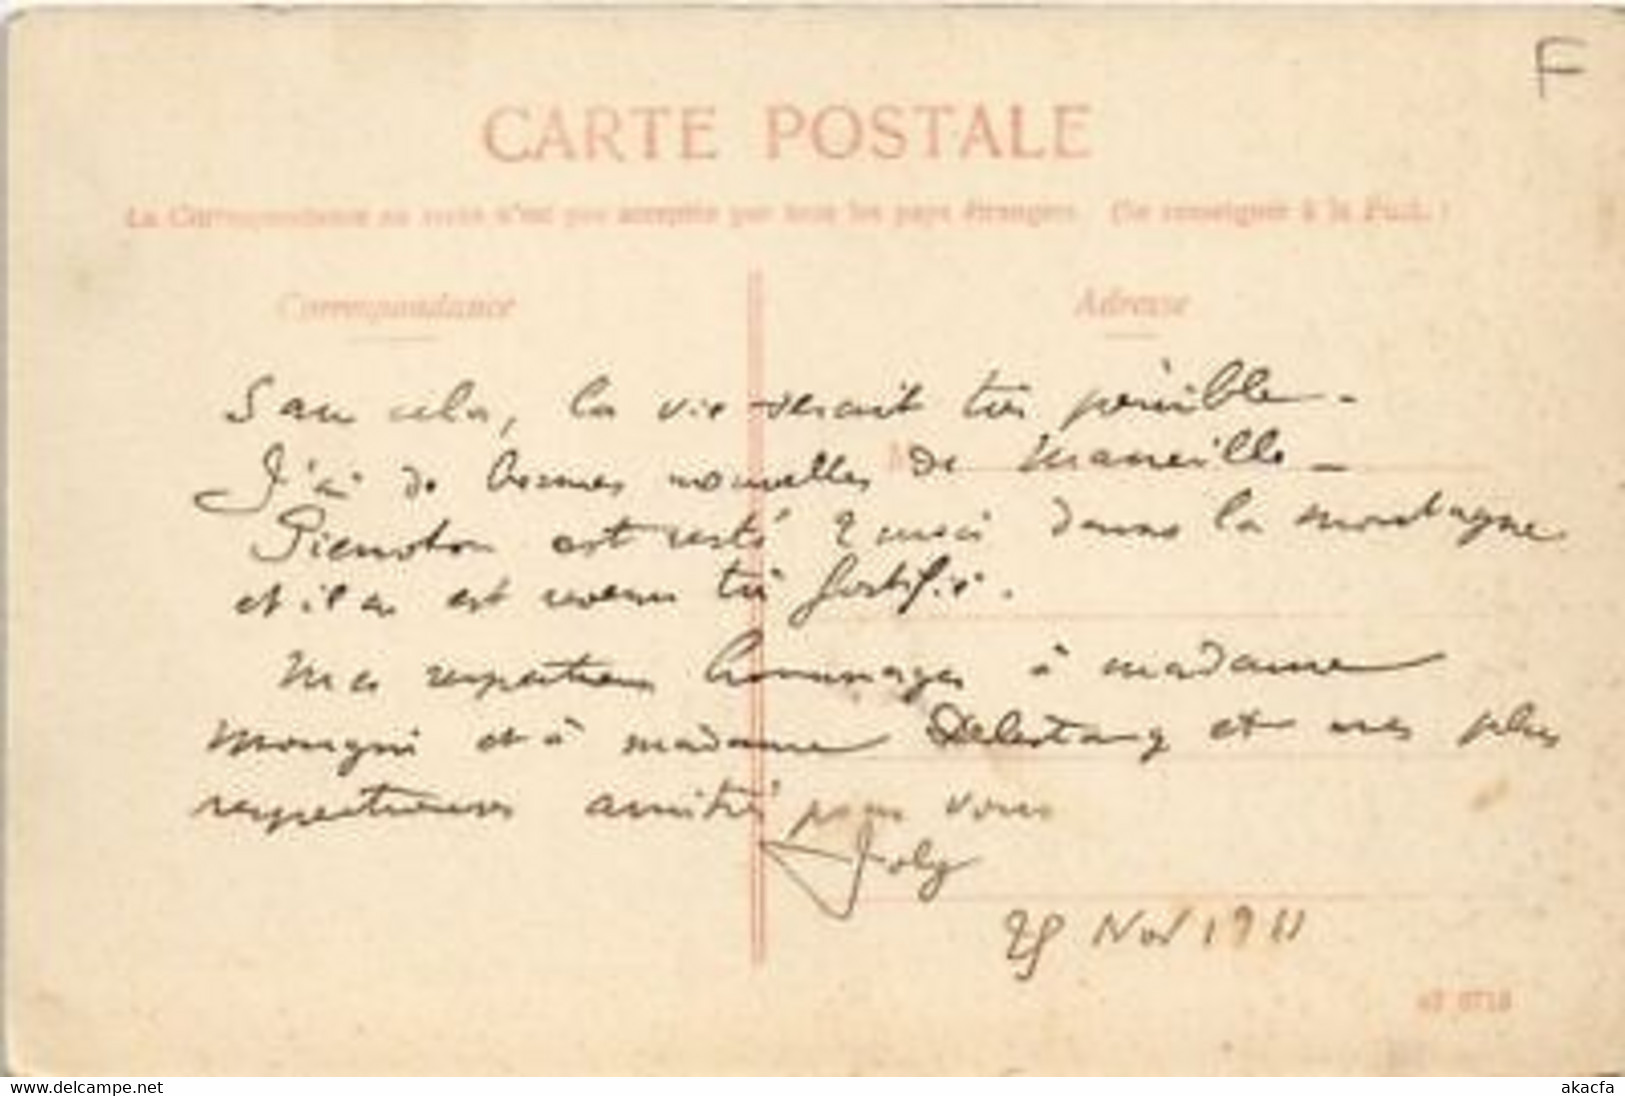 F
CARTE POSTALE
La Correspondance au recto n'est pas acceptée par tous les pays étrangers (Se renseigner à la Post.)
Correspondance
Adresse
Sans cela, la vie serait très pénible -
J'ai de bonnes nouvelles de Marseille -
est resté 2 mois dans la montagne
et il en est revenu très fortifié.
Mes respectueux hommages à madame
et à madame Delestang et mes plus
respectueuses amitiés pour vous
Joly
25 Nov 1911
www.delcampe.net
akacfa